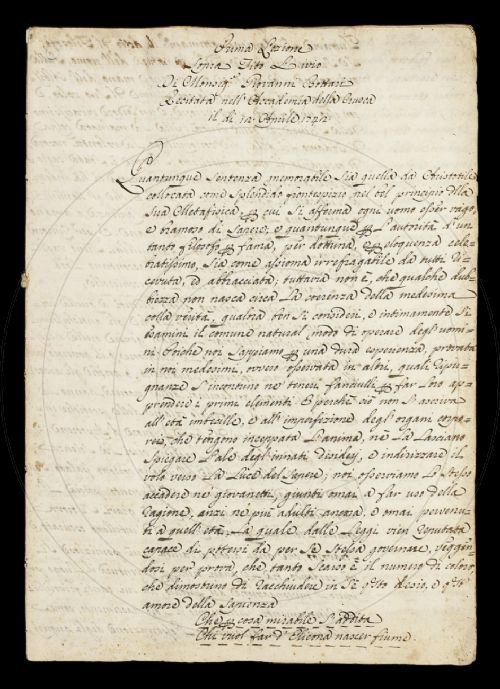 Prima Lezione
Sopra Tito Livio
Di Monsigr. Giovanni Bottari
Recitata nell'Accademia della Crusca
il dì 12 Aprile 1742
Quantunque sentenza memorabile sia quella da Aristotile
collocata come splendido frontespizio nel bel principio della
sua Metafisica, per cui si afferma ogni uomo esser vago,
e bramoso di sapere; e quantunque per l'autorità d'un
tanto filosofo per fama, per dottrina, e per eloquenza cele-
bratissimo, sia come assioma irrefragabile da tutti ri-
cevuta, ed abbracciata; tuttavia non è, che qualche dub-
biezza non nasca circa la certezza della medesima
colla verità, qualora ben si consideri, e intimamente si
esamini il comune natural modo di operare degl'uomi-
ni. Poichè noi sappiamo per una dura esperienza, provata
in noi medesimi, ovvero osservata in altri, quali ripu-
gnanze s'incontrino ne' teneri fanciulli per far loro ap-
prendere i primi elementi. E perchè ciò non s'ascriva
all'età imbecille, e all'imperfezione degl'organi corpo-
rei, che tengono inceppata l'anima, nè la lasciano
spiegare l'ale degl'innati desiderj, e indirizzare il
volo verso la luce del sapere; noi osserviamo lo stesso
accadere ne' giovanetti, giunti omai a far uso della
ragione, anzi ne' più adulti ancora, e omai pervenu-
ti a quell'età, la quale dalle Leggi vien reputata
capace di potersi da per se stessa governare, veggen-
dosi per prova, che tanto scarso è il numero di coloro,
che dimostrino di racchiudere in sè qsto desio, e qsto
amore della sapienza
Che per cosa mirabile s'addita
Chi vuol far d'Elicona nascer fiume.